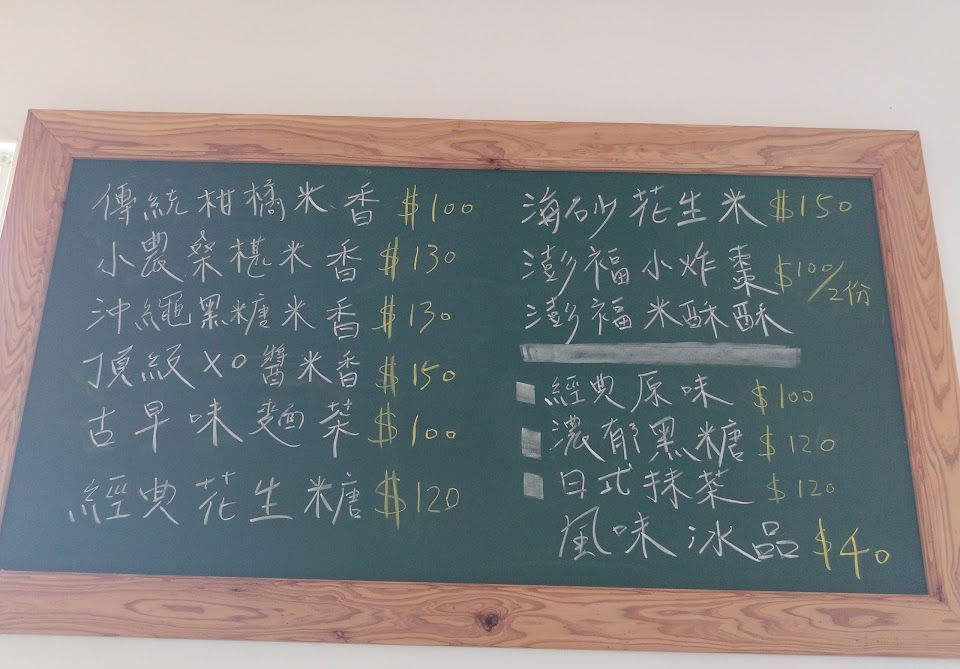 傳統柑橘米香 $100
小農桑椹米香 $130
沖繩黑糖米香 $130
頂級XO醬米香 $150
古早味麵茶 $100
經典花生糖 $120
海砂花生米 $150
澎福小炸棗 $100/2份
澎福米酥酥
經典原味 $100
濃郁黑糖 $120
日式抹茶 $120
風味冰品 $40